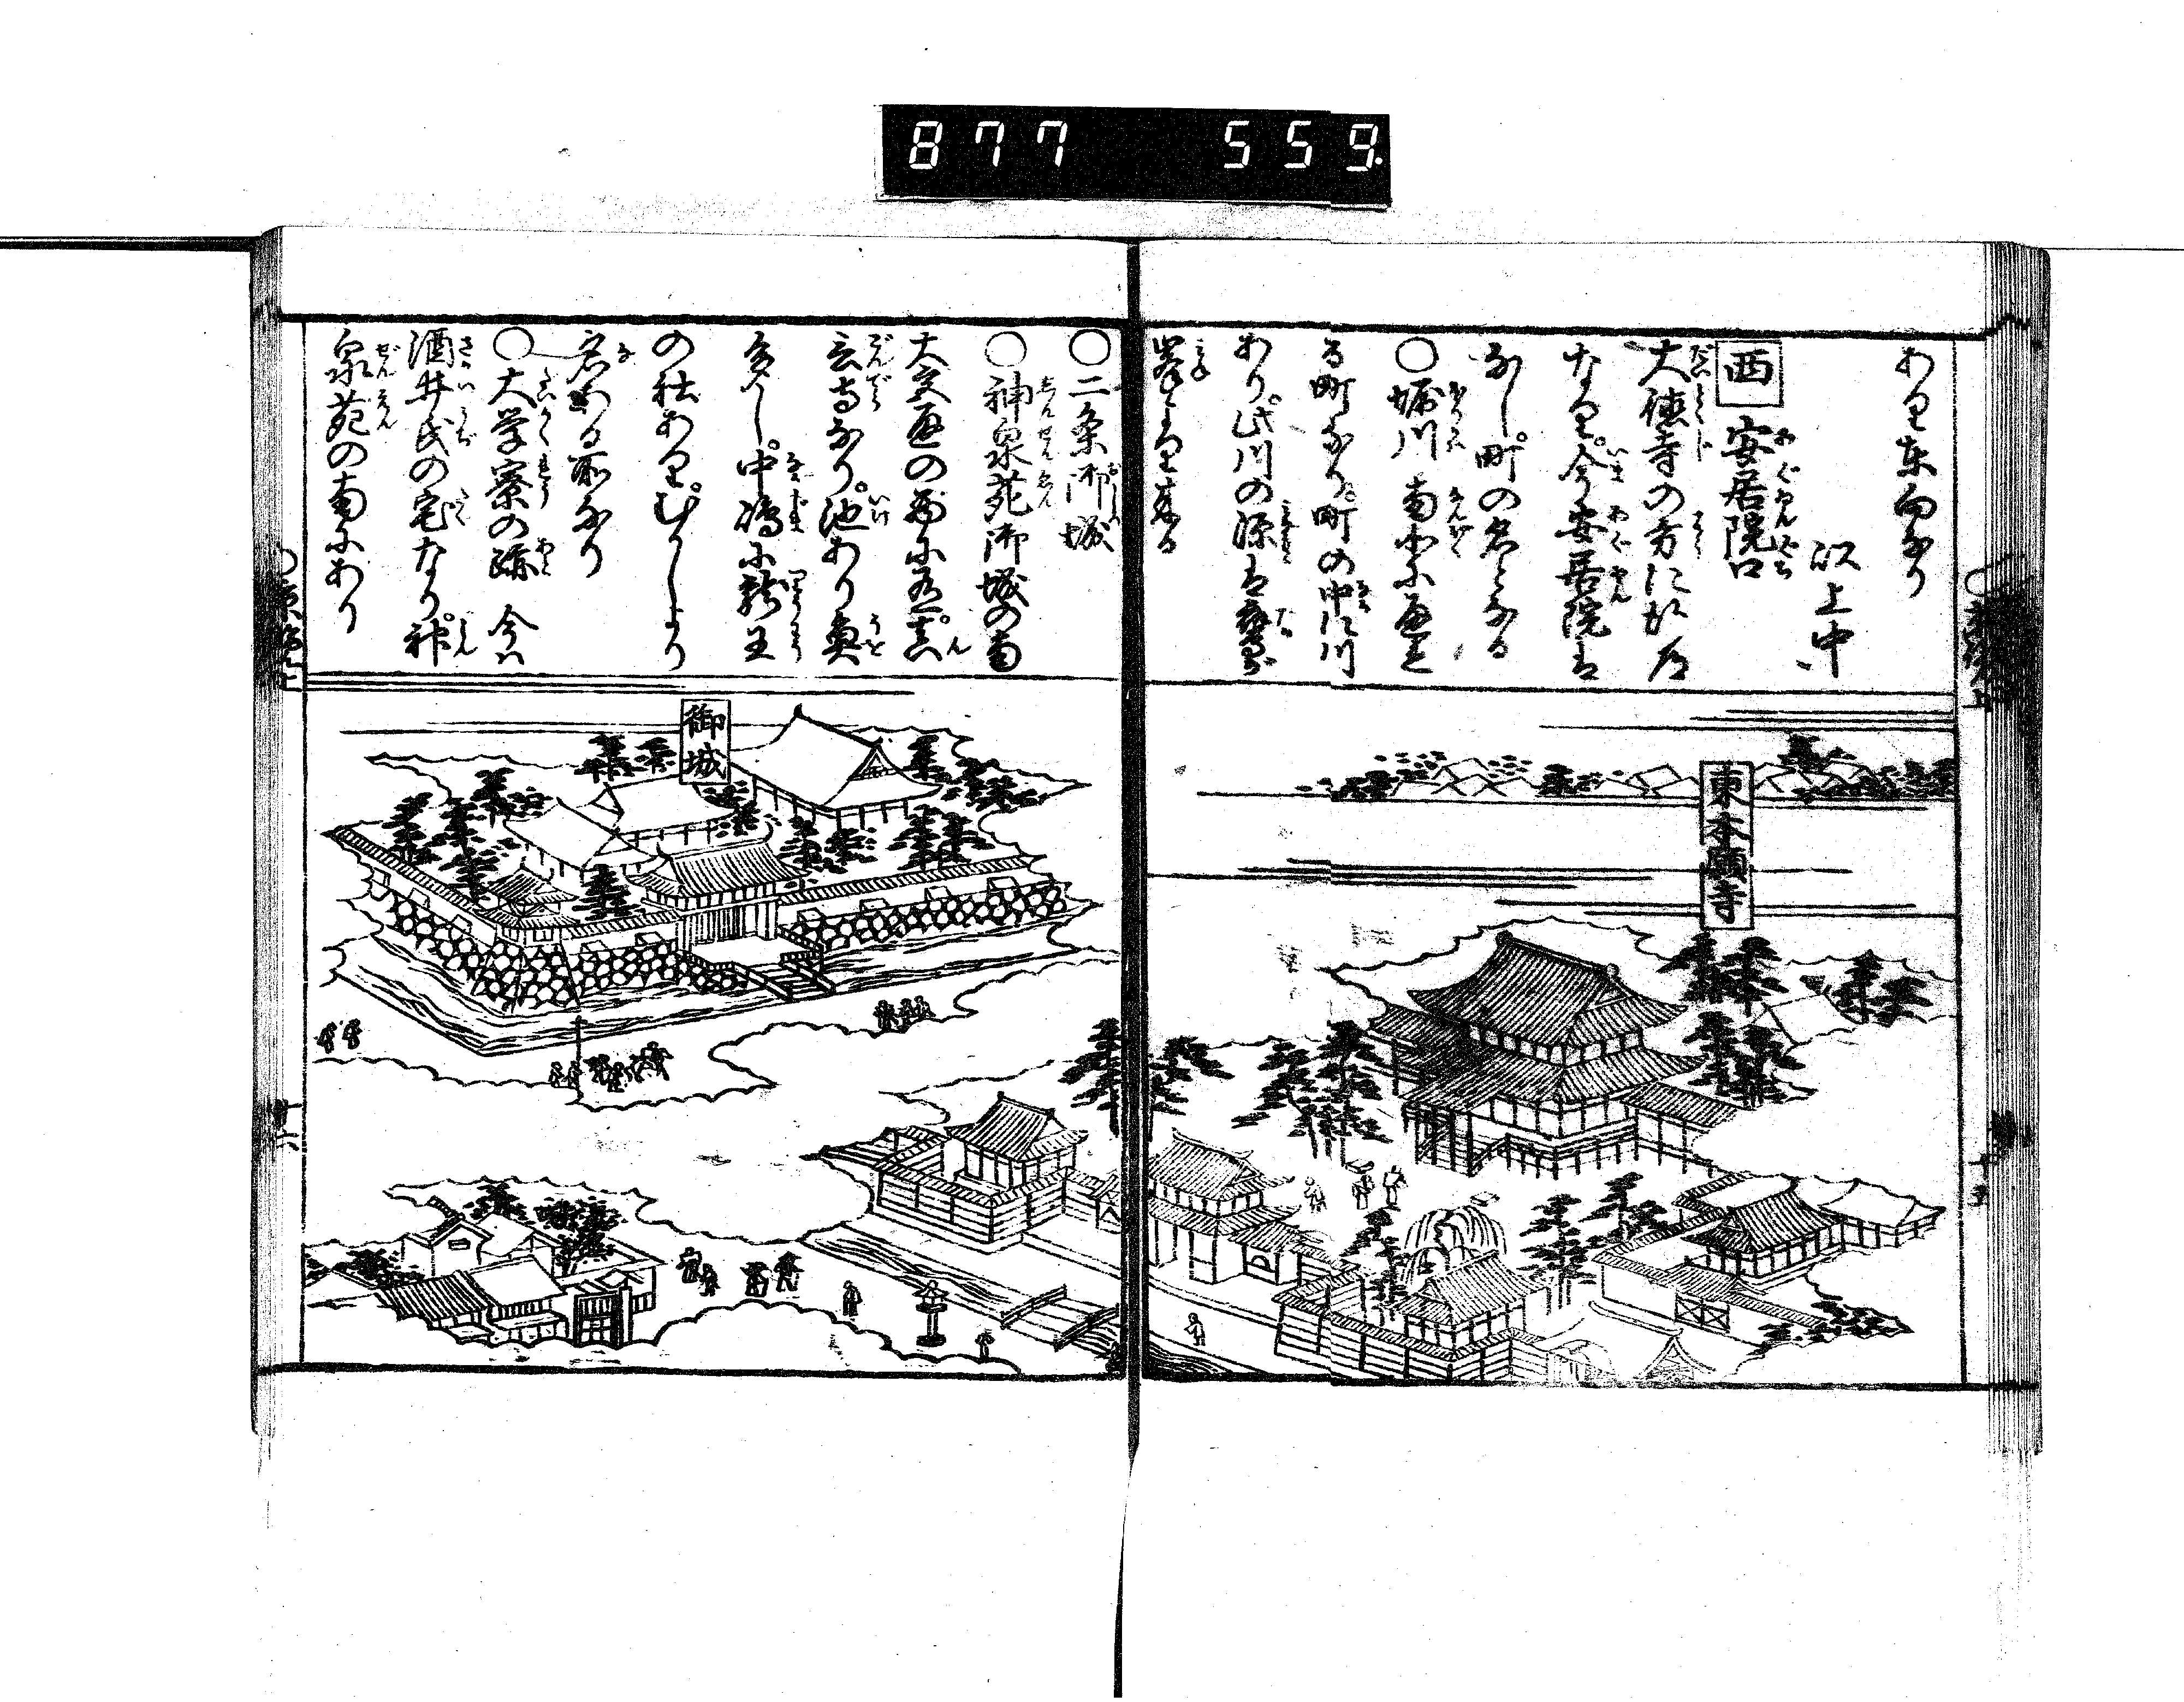 877 559.
あり東向なり
以上中
西 安居院口
大徳寺の方に行道
なり。今安居院は
なし。町の名となる
〇堀川 南北に通り
る町なり。町の中に川
あり。此川の源は鷹
峯より来る
〇二条御城
〇神泉苑 御城の南
大宮通の西に有。真
言寺なり。池あり奥
多し。中嶋に龍王
の社あり。むかしより
名ある所なり
〇大学寮の跡 今は
酒井氏の宅なり。神
泉苑の南にあり
東本願寺
御城